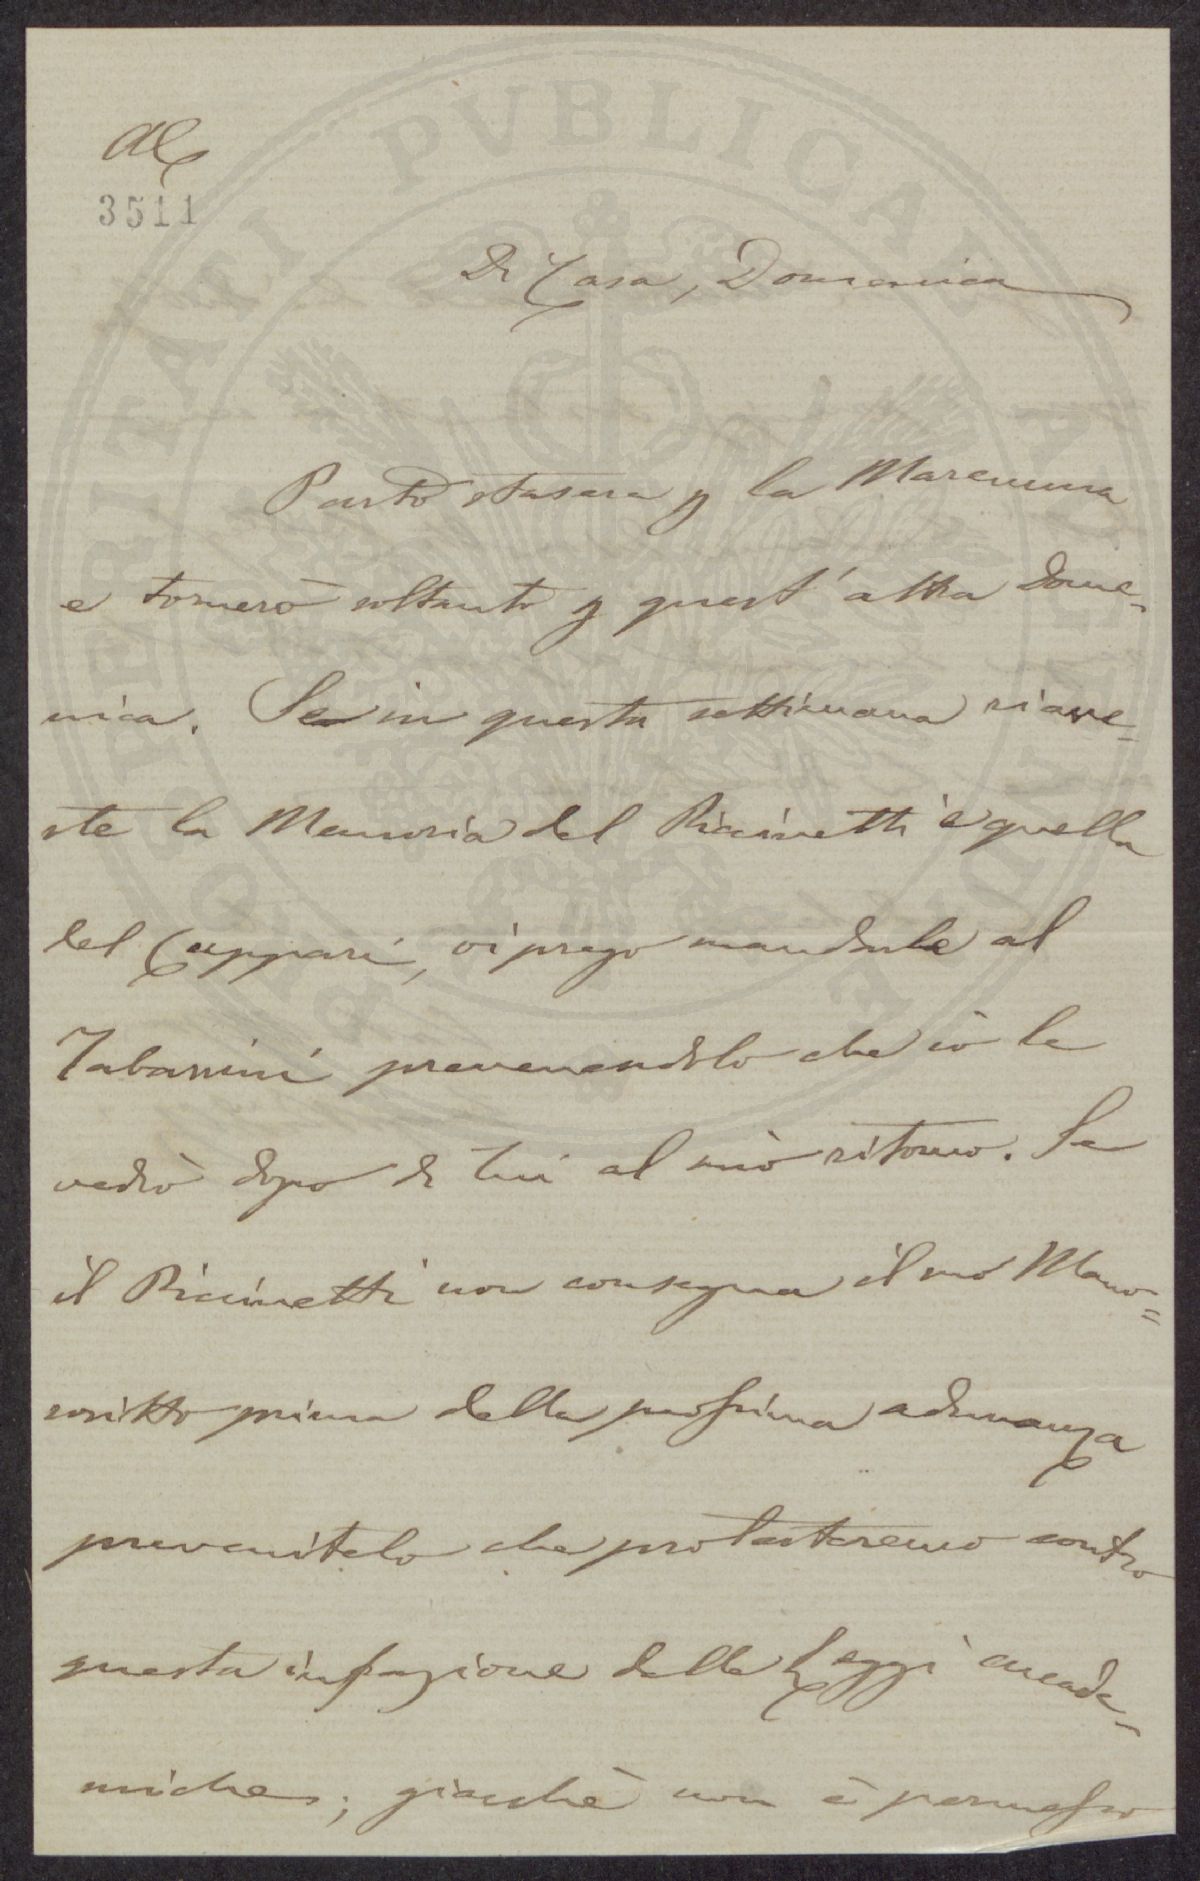 AC
3511
Di Casa, Domenica
Parto stasera p la Maremma
e tornerò soltanto p quest'altra Dome-
nica. Se in questa settimana riave-
ste la Memoria del Ricinetti e quella
del Cuppari, vi prego mandarle al
Tabarrini prevenendolo che io le
vedrò dopo di lui al mio ritorno. Se
il Ricinetti non consegna il suo Mano=
scritto prima della prossima adunanza
prevenitelo che protesteremo contro
questa infrazione delle Leggi accade-
miche; giacchè non è permesso
PVBLICAE